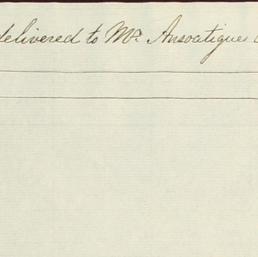 delivered to Mr. Ansoatigues